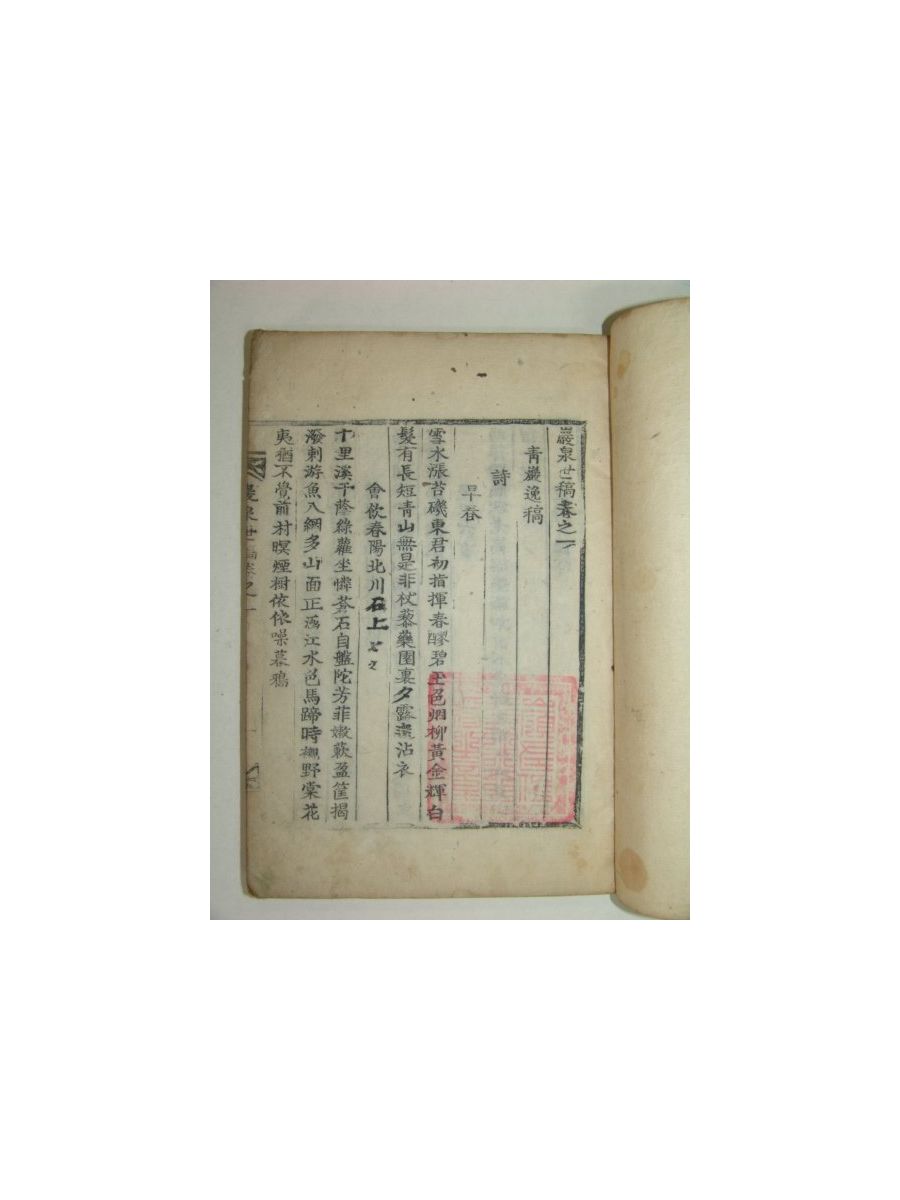 巖泉世稿卷之一
青巖逸稿
詩
早春
雪水漲苔磯東君初指揮春醪碧玉色烟柳黃金輝白
髮有長短青山無是非杖藜藥園裏夕露還沾衣
會飮春陽北川石上
十里溪干蔭綠蘿坐憐蒼石自盤陀芳菲嫩蔌盈筐揭
潑剌游魚入網多山面正濃江水色馬蹄時襯野棠花
夷猶不覺前村暝煙樹依依噪暮鴉
世稿卷之一